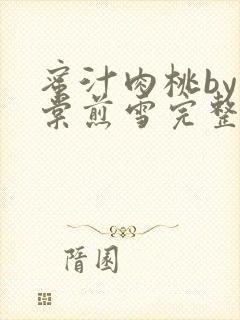 蜜汁肉桃by
棠煎雪完整
隋園